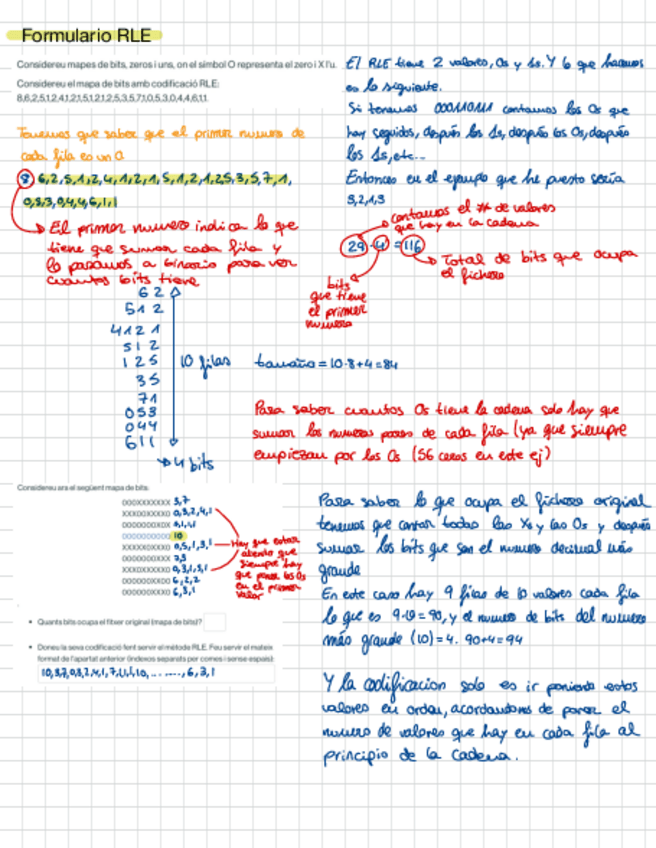 Formulario RLE
Considereu mapes de bits, zeros i uns, on el símbol O representa el zero i X l'u.
Considereu el mapa de bits amb codificació RLE:
8,6,2,5,1,2,4,1,2,1,5,1,2,1,2,5,3,5,7,1,0,5,3,0,4,4,6,1,1
Tenemos que saber que el primer numero de
cada fila es un 0
8, 6,2,5,1,2,4,1,2,1,5,1,2,1,2,5,3,5,7,1,
0,5,3,0,4,4,6,1,1
El primer numero indica lo que
tiene que sumar cada fila y
lo pasamos a binario para ver
cuantos bits tiene
6 2
5 1 2
4 1 2 1
5 1 2
1 2 5
3 5
7 1
0 5 3
0 4 4
6 1 1
10 filas
4 bits
tamaño = 10·8+4=84
El RLE tiene 2 valores, 0s y 1s. Y lo que hacemos
es lo siguiente.
Si tenemos 00011011 contamos los 0s que
hay seguidos, después los 1s, después los 0s, después
los 1s, etc...
Entonces en el ejemplo que he puesto sería
3,2,1,3
contamos el # de valores
que hay en la cadena
29·4=116
Total de bits que ocupa
el fichero
bits
que tiene
el primer
numero
Para saber cuantos 0s tiene la cadena solo hay que
sumar los numeros pares de cada fila (ya que siempre
empiezan por los 0s (56 ceros en este ej)
Considereu ara el següent mapa de bits:
OOOXXXXXXX 3,7
0,3,2,4,1
10
0,5,1,3,1
7,3
0,3,1,5,1
6,2,2
6,3,1
Hay que estar
atento que
siempre hay
que poner los 0s
en el primer
valor
Quants bits ocupa el fitxer original (mapa de bits)?
Doneu la seva codificació fent servir el mètode RLE. Feu servir el mateix
format de l'apartat anterior (indexos separats per comes i sense espais):
Para saber lo que ocupa el fichero original
tenemos que contar todas las Xs y las Os y después
sumar los bits que son el numero decimal más
grande
En este caso hay 9 filas de 10 valores cada fila
lo que es 9·10=90, y el numero de bits del numero
más grande (10)=4. 90+4=94
Y la codificacion solo es ir poniendo estos
valores en orden, acordandonos de poner el
numero de valores que hay en cada fila al
principio de la cadena.